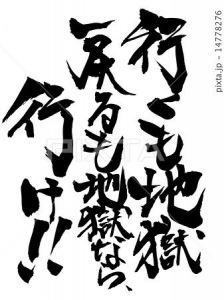 行くも地獄
戻るも地獄なら、
行け!!
PIXTA
pixta.jp - 14778276